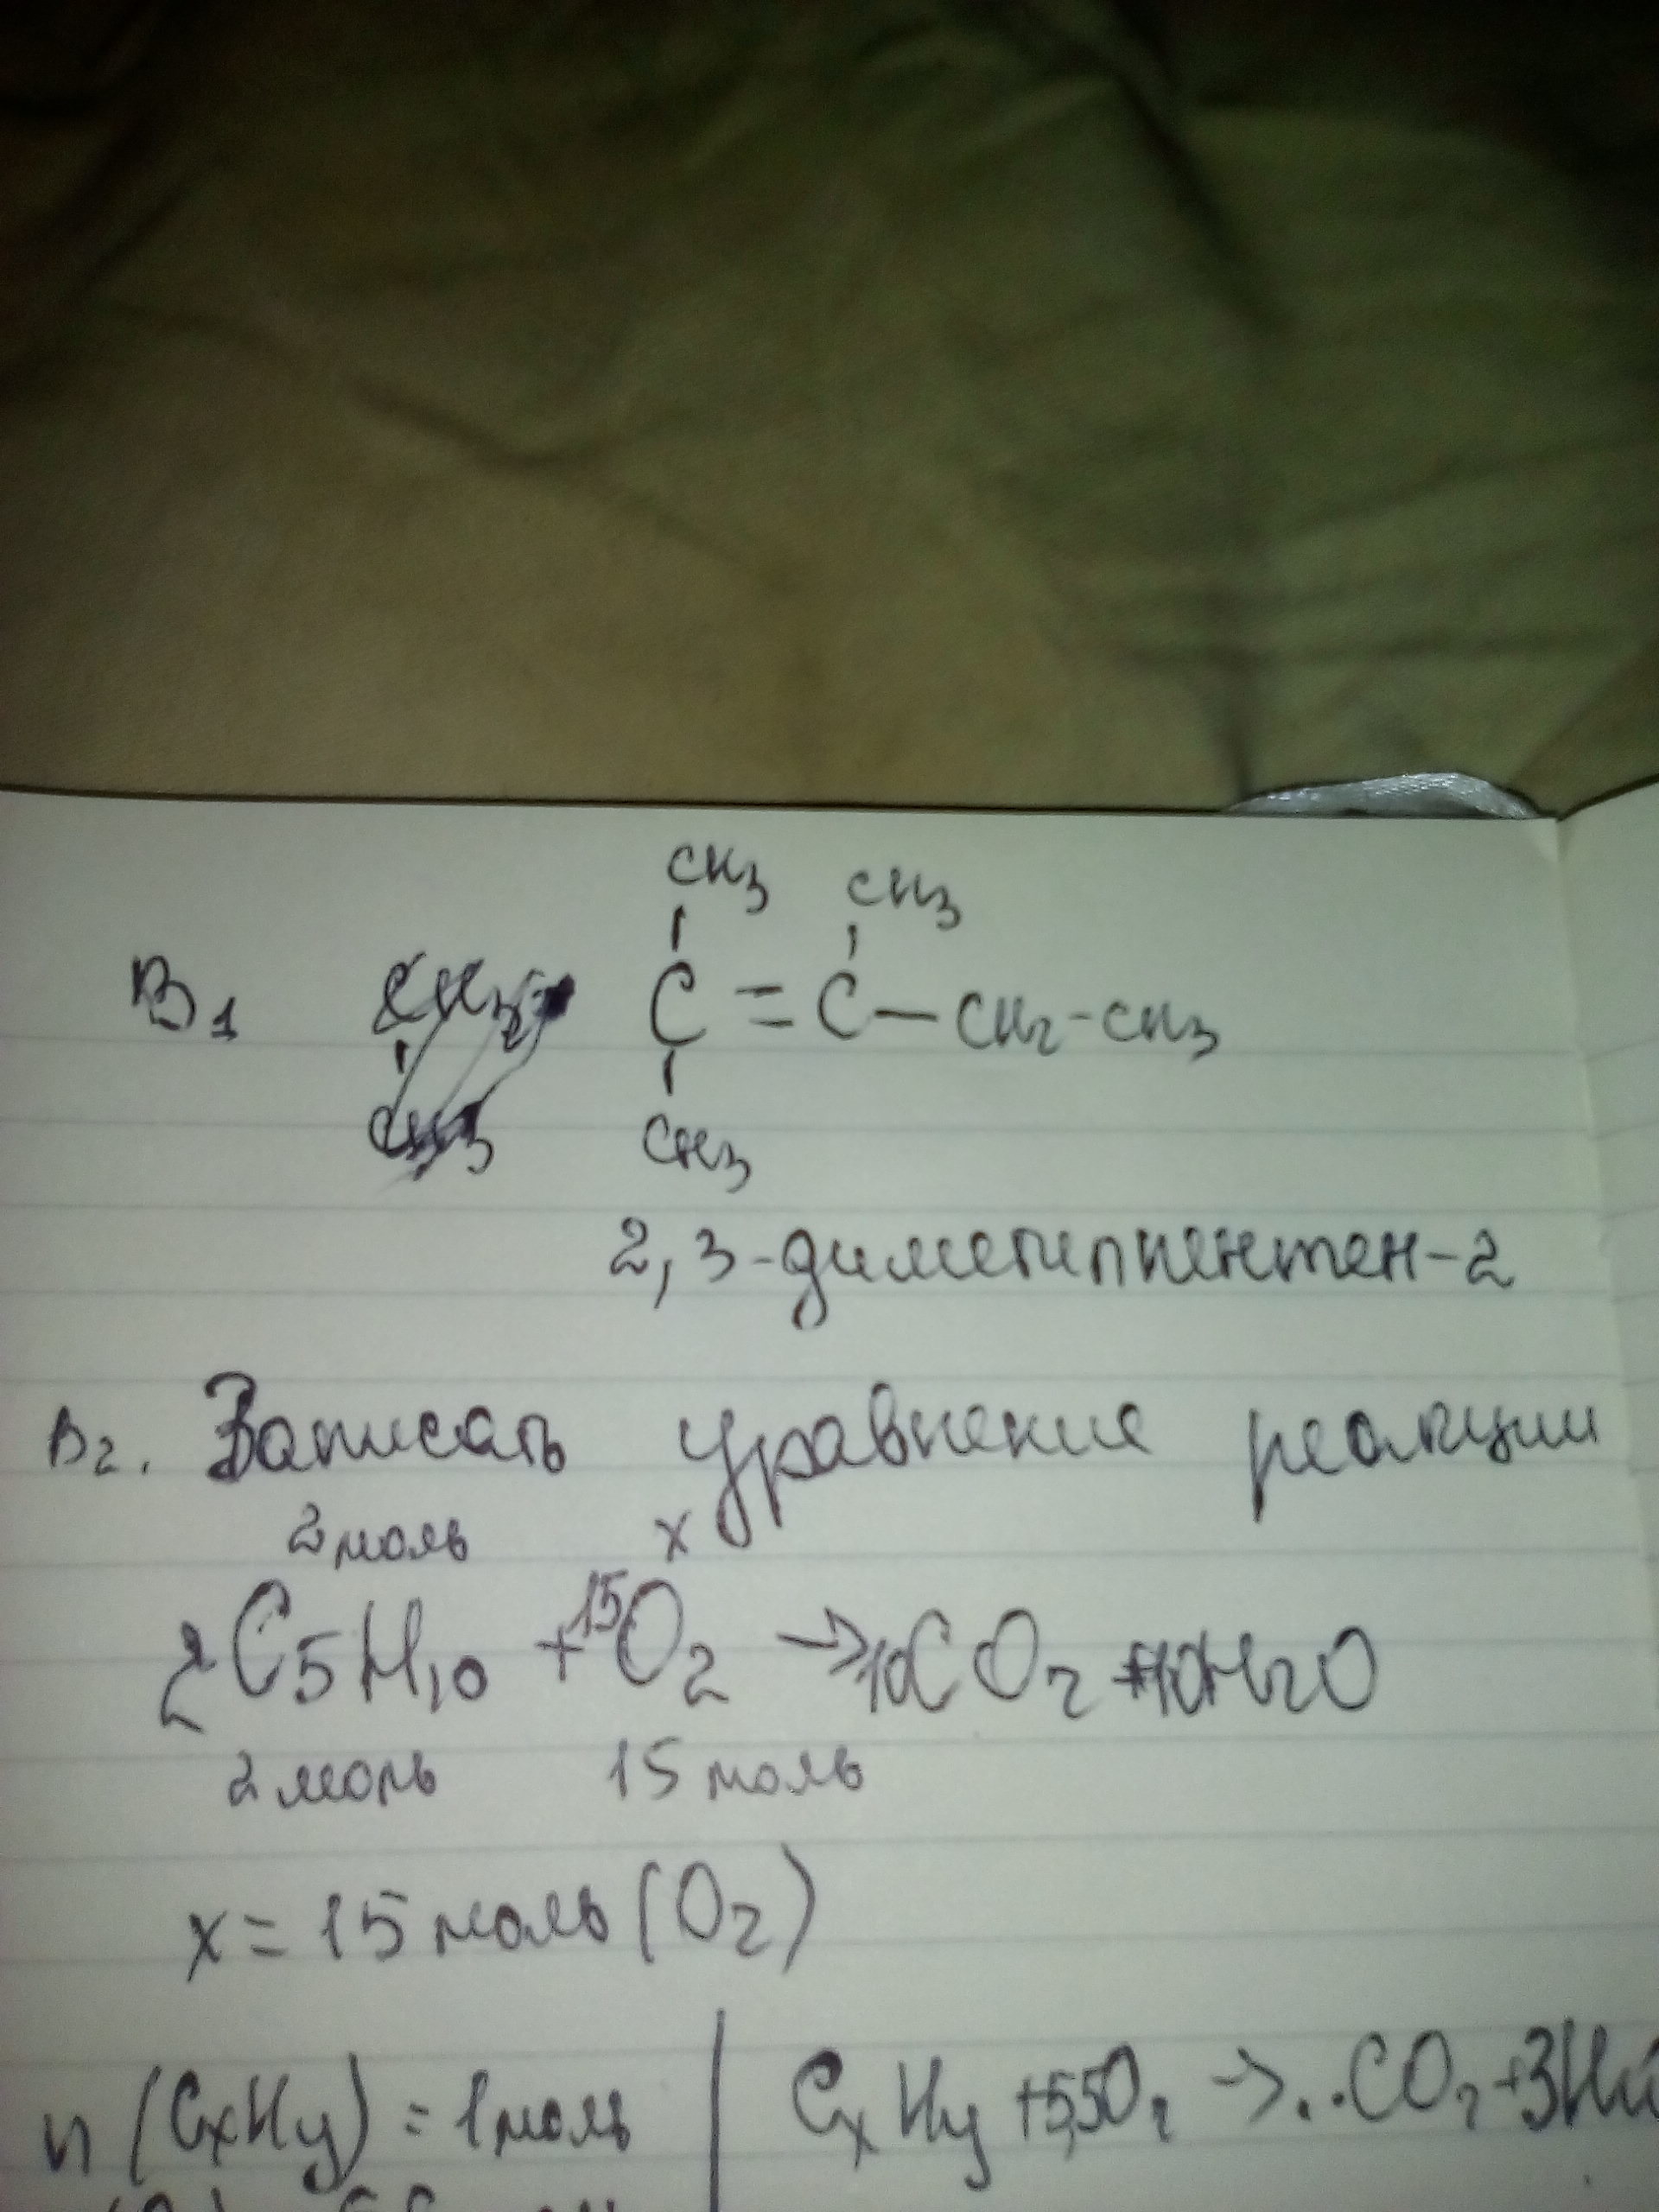 CH3 CH3
B1 C = C — CH2 - CH3
CH3
2,3-диметилпентен-2
B2. Записать уравнение реакции
2 моль x
2 C5H10 + 15O2 → 10CO2 + 10H2O
2 моль 15 моль
x = 15 моль (O2)
n (CxHy) = 1 моль | CxHy + 5,5O2 → ..CO2 + 3H2